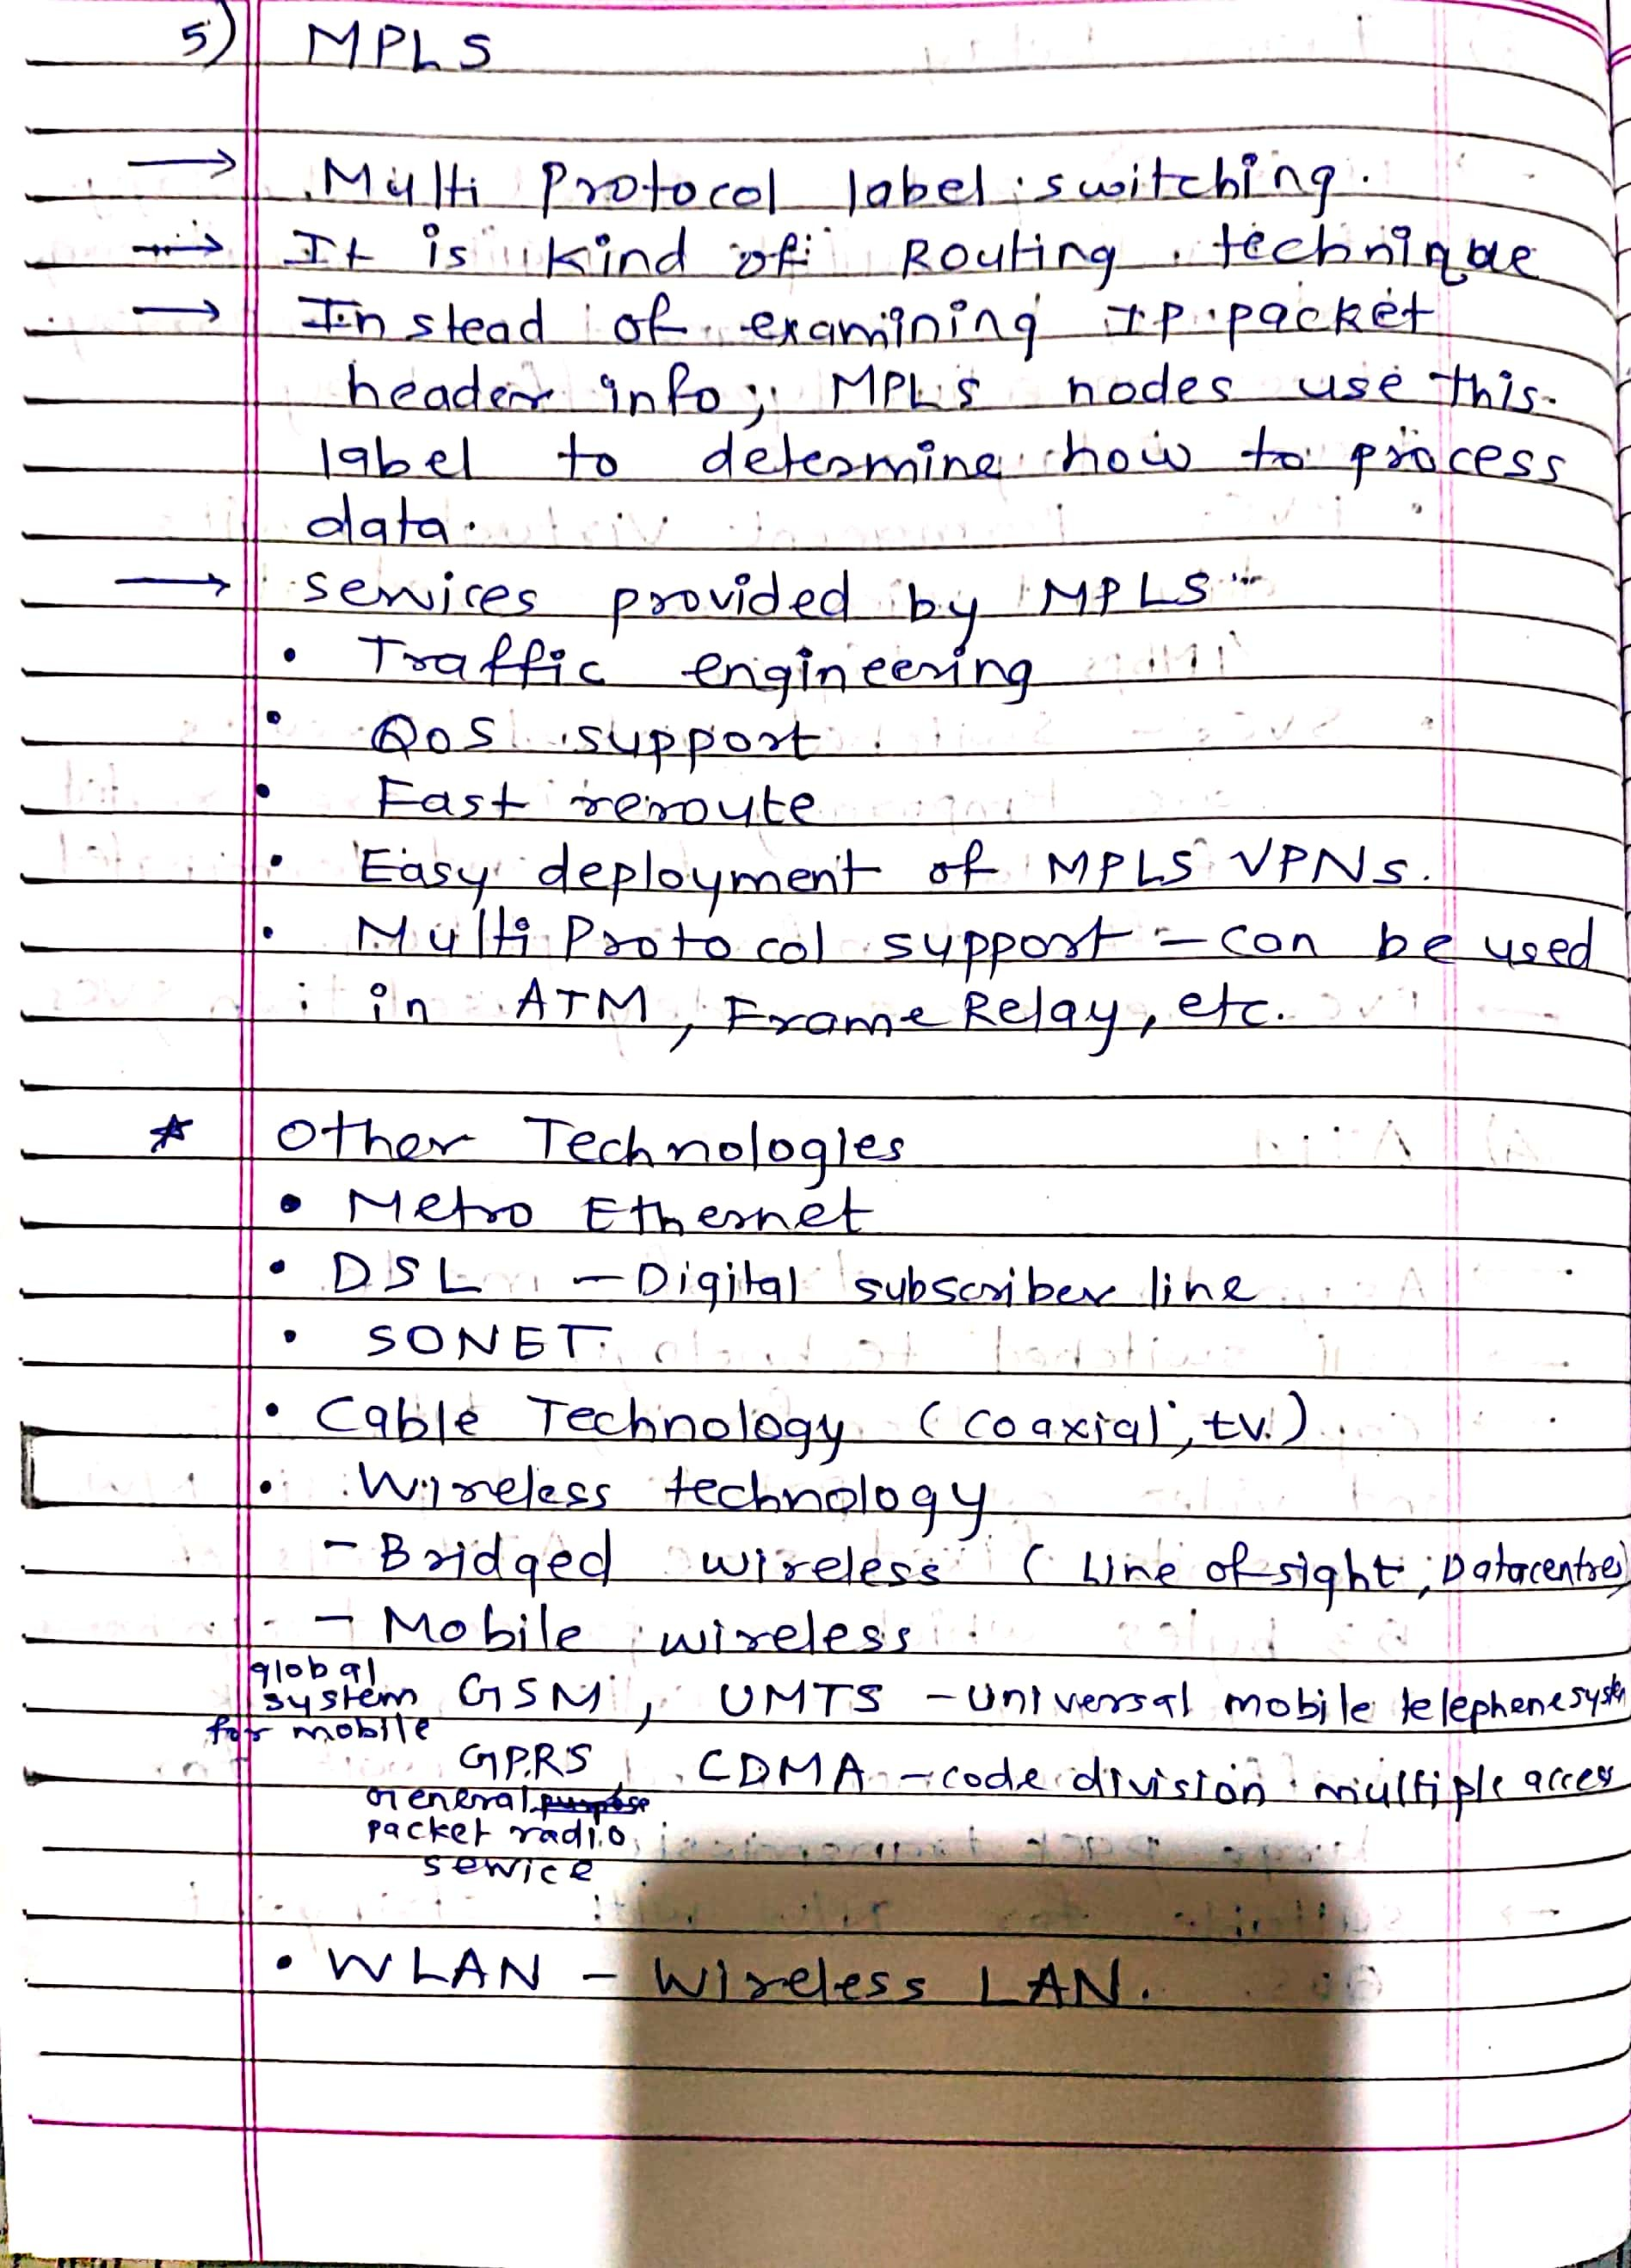 5) MPLS
→ Multi Protocol label switching.
→ It is kind of Routing technique
→ Instead of examining IP packet
header info, MPLS nodes use this
label to determine how to process
data.
→ services provided by MPLS
• Traffic engineering
• QoS support
• Fast reroute
• Easy deployment of MPLS VPNs.
• Multi Protocol support - can be used
in ATM, Frame Relay, etc.
* Other Technologies
• Metro Ethernet
• DSL - Digital subscriber line
• SONET
• Cable Technology (coaxial, tv.)
• Wireless technology
- Bridged wireless (Line of sight, Datacentres)
- Mobile wireless
global
system GSM, UMTS - Universal mobile telephone system
for mobile
GPRS, CDMA - code division multiple acces
General purpose
packet radio
service
• WLAN - Wireless LAN.